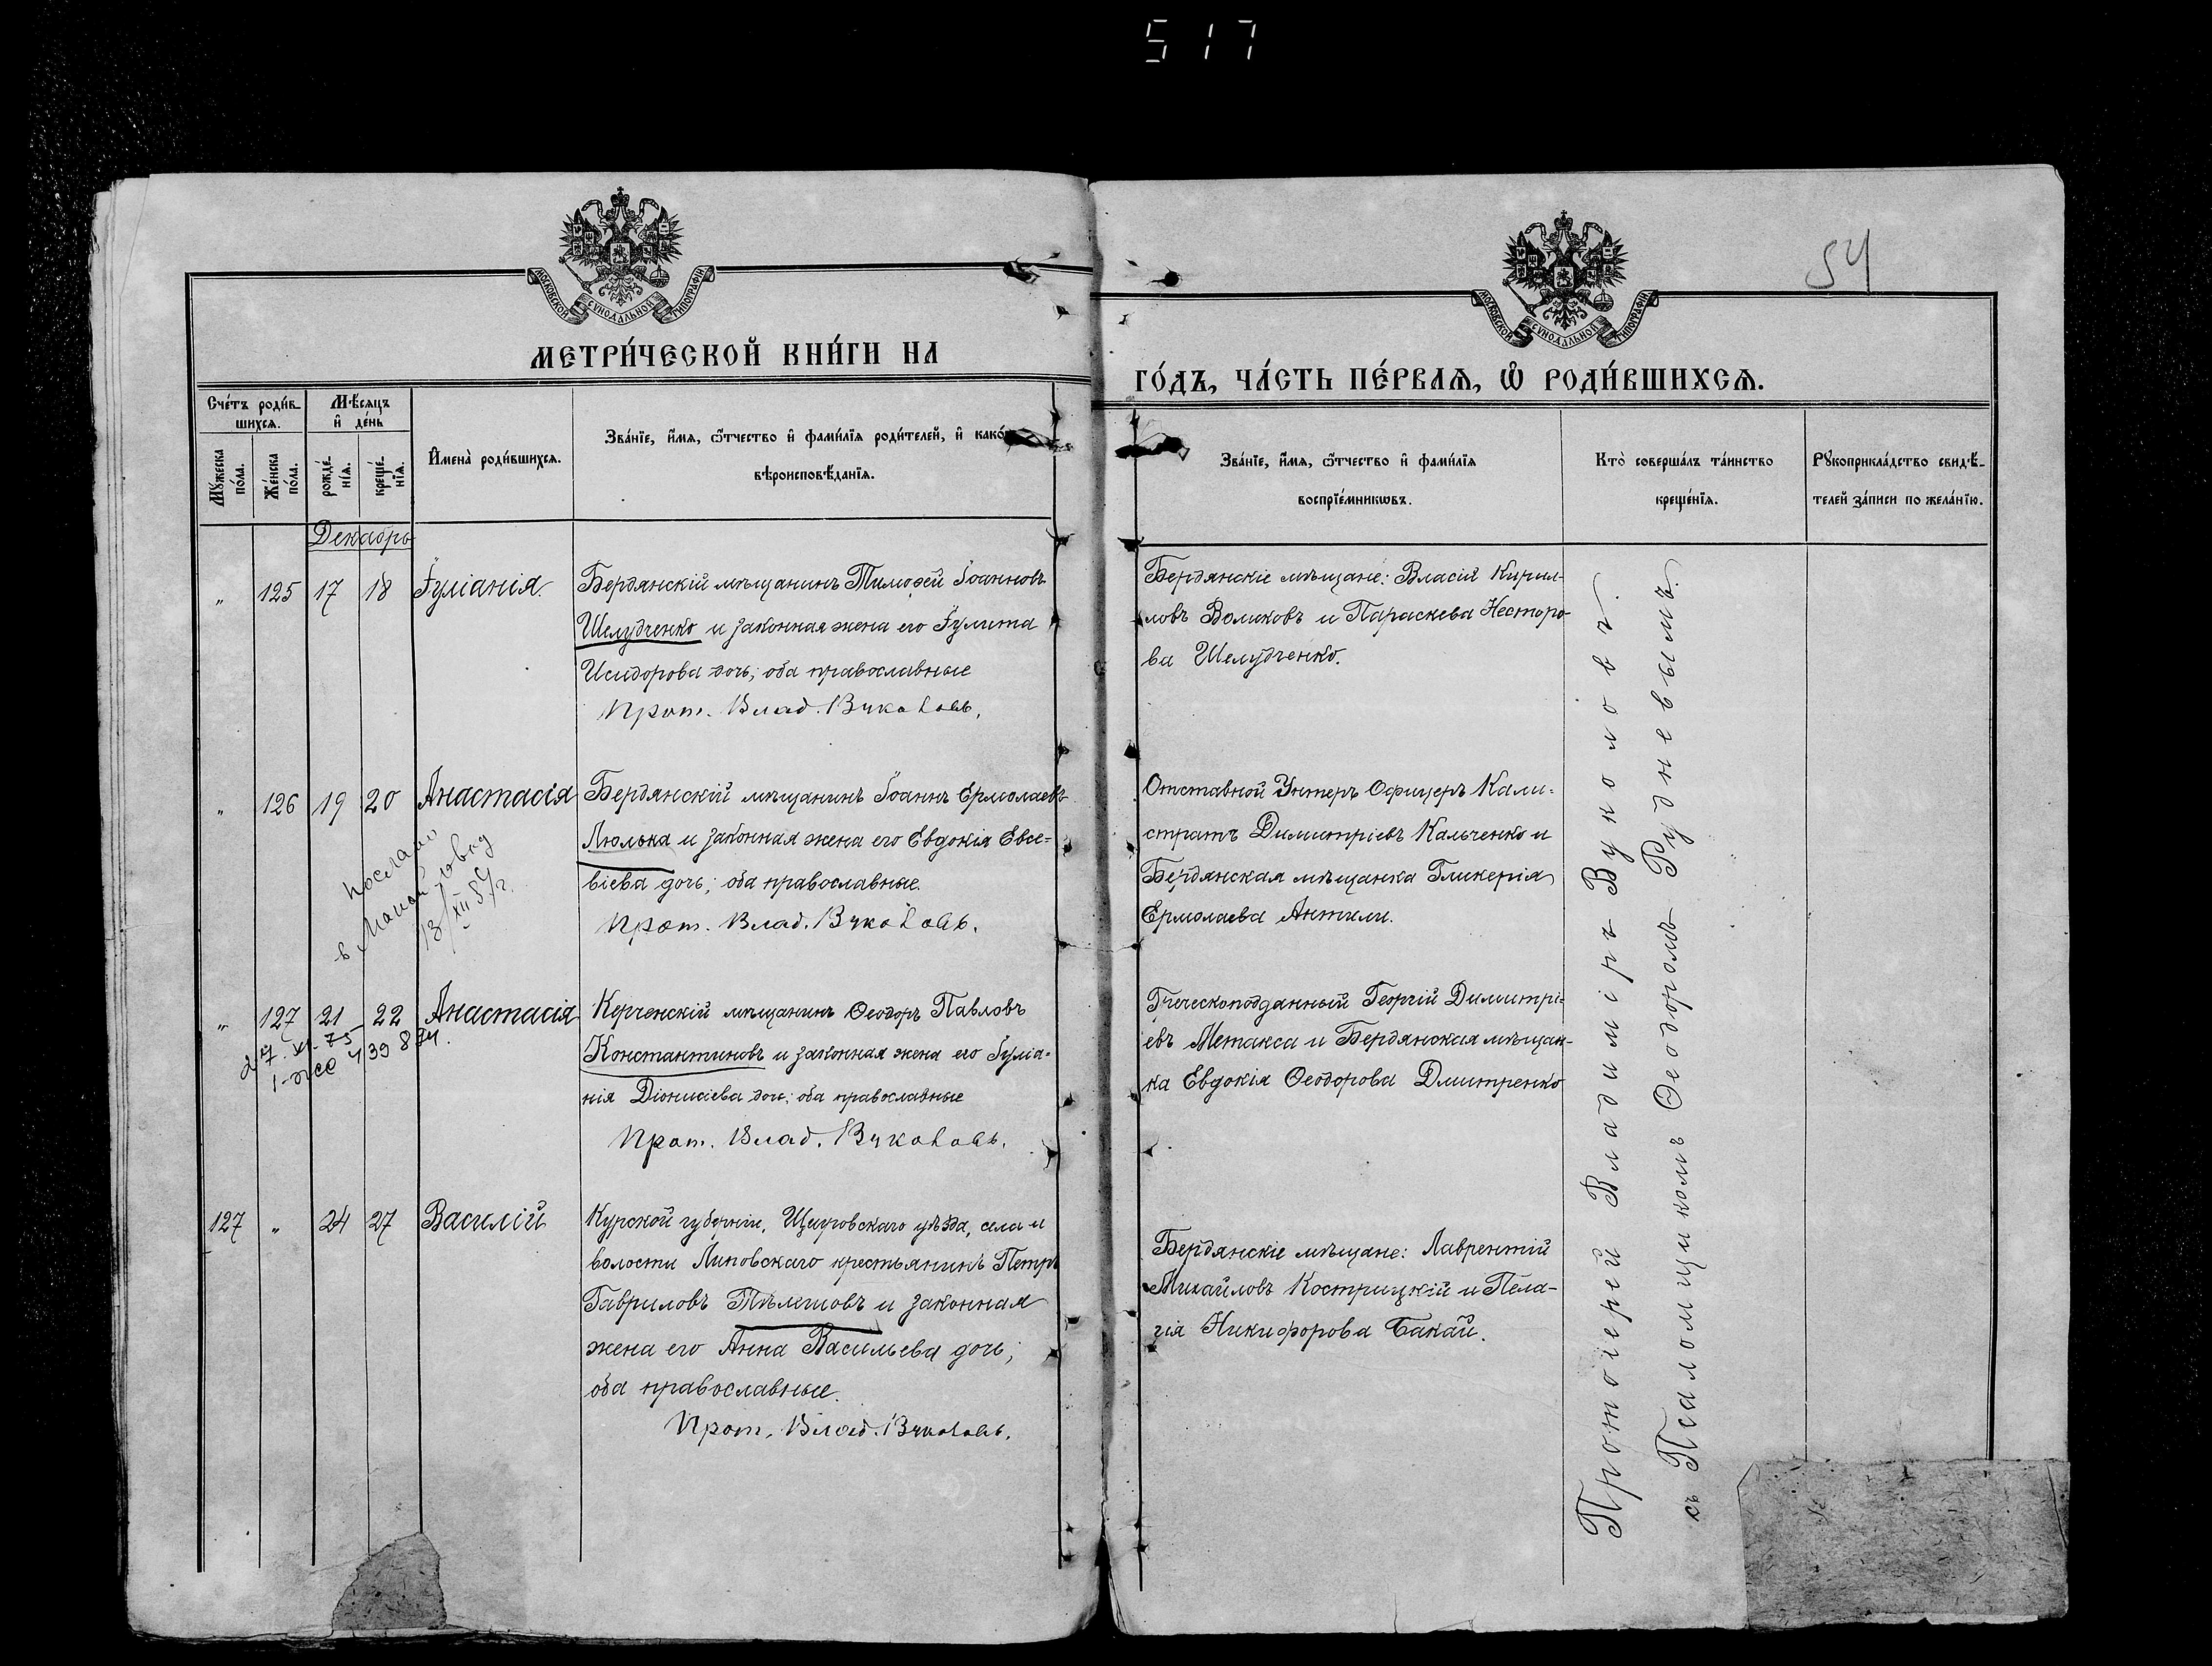 517
54
МОСКОВСКОЙ СѴНОДАЛЬНОЙ ТИПОГРАФІИ
МОСКОВСКОЙ СѴНОДАЛЬНОЙ ТИПОГРАФІИ
МЕТРИ́ЧЕСКОЙ КНИ́ГИ НА
ГО́ДЪ, ЧА́СТЬ ПЕ́РВАЯ, Ѡ҆ РОДИ́ВШИХСЯ.
Сче́тъ роди́в-
шихсѧ.
Мѣ́сѧцъ
и҆ де́нь
Мꙋ́жеска по́ла.
Же́нска по́ла.
рожде́-нїѧ.
креще́-нїѧ.
И҆мена̀ роди́вшихсѧ.
Зва́нїе, и҆́мѧ, ѻ҆́тчество и҆ фами́лїѧ роди́телей, и҆ како́
вѣроисповѣ́данїѧ.
Зва́нїе, и҆́мѧ, ѻ҆́тчество и҆ фами́лїѧ
воспрїе́мникѡвъ.
Кто̀ соверша́лъ та́инство
креще́нїѧ.
Рꙋкоприкла́дство свидѣ́-
телей за́писи по жела́нїю.
Декабрь
„ 125 17 18 Іуліанія.
Бердянскій мѣщанинъ Тимоѳей Іоанновъ
Шелудченко и законная жена его Іулита
Исидорова дочь; оба православные
Прот. Влад. Вуколовъ.
Бердянскіе мѣщане: Власій Кирил-
ловъ Воликовъ и Параскева Несторо-
ва Шелудченко.
„ 126 19 20 Анастасія
Бердянскій мѣщанинъ Іоаннъ Ермолаевъ
Люлька и законная жена его Евдокія Евсе-
віева дочь; оба православные.
Прот. Влад. Вуколовъ.
Отставной Унтеръ Офицеръ Кали-
стратъ Димитріевъ Кальченко и
Бердянская мѣщанка Гликерія
Ермолаева Антили.
послано
в
13/XII 84 г.
„ 127 21 22 Анастасія
Керченскій мѣщанинъ Ѳеодоръ Павловъ
Константиновъ и законная жена его Іуліа-
нія Діонисіева дочь; оба православные
Прот. Влад. Вуколовъ.
Греческоподданный Георгій Димитрі-
евъ Метакса и Бердянская мѣщан-
ка Евдокія Ѳеодорова Дмитренко
127 „ 24 27 Василій
Курской губерніи, Щигровскаго уѣзда, села и
волости Липовскаго крестьянинъ Петръ
Гавриловъ и законная
жена его Анна Васильева дочь;
оба православные.
Прот. Влад. Вуколовъ.
Бердянскіе мѣщане: Лаврентій
Михайловъ Кострицкій и Пела-
гія Никифорова Бакай.
Протоіерей Владиміръ Вуколовъ
съ Псаломщикомъ Ѳеодоромъ Рудневымъ.